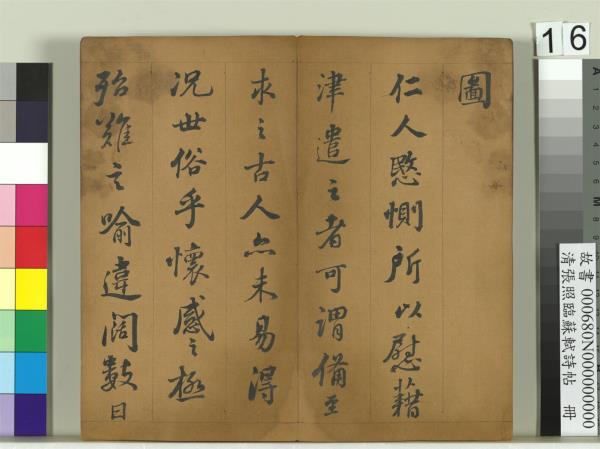 圖
仁人愍惻所以慰藉
津遣之者可謂備至
求之古人亦未易得
況世俗乎懷感之極
殆難之喻違闊數日
16
故書 000680N000000000
清張照臨蘇軾詩帖 冊